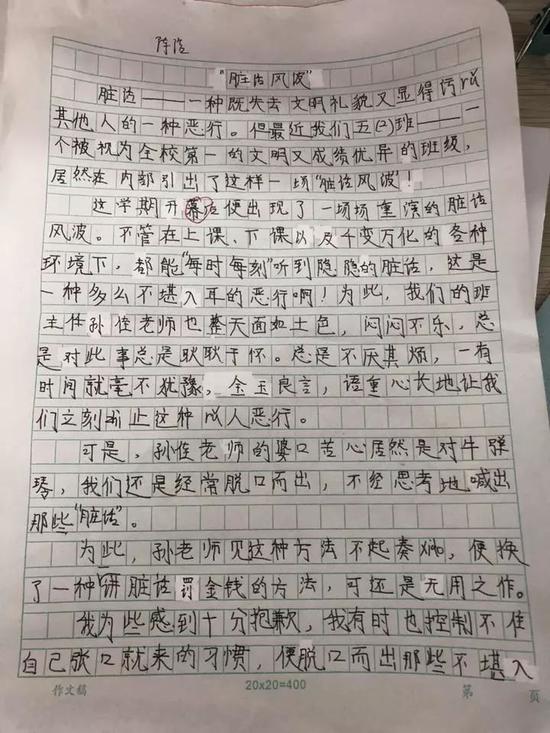 陈浩
“脏话风波”
脏话——一种既失去文明礼貌又显得污ru
其他人的一种恶行。但最近我们五(2)班——一
个被视为全校第一的文明又成绩优异的班级,
居然在内部引出了这样一场“脏话风波”!
这学期开幕后便出现了一场场重演的脏话
风波。不管在上课、下课以及千变万化的各种
环境下,都能“每时每刻”听到隐隐的脏话,这是
一种多么不堪入耳的恶行啊!为此,我们的班
主体孙俊老师也整天面如土色,闷闷不乐,总
是对此事总是耿耿于怀。总是不厌其烦,一有
时间就毫不犹豫,金玉良言,语重心长地让我
们立刻停止这种以人恶行。
可是,孙俊老师的婆口苦心居然是对牛弹
琴,我们还是经常脱口而出,不经思考地喊出
那些“脏话”。
为此,孙老师见这种方法不起奏xiao,便换
了一种讲脏话罚金钱的方法,可还是无用之作。
我为些感到十分抱歉,我有时也控制不住
自己张口就来的习惯,便脱口而出那些不堪入
作文稿
20x20=400
第 页